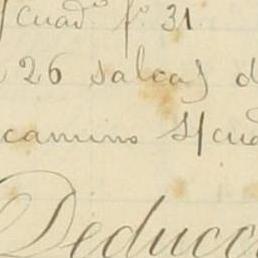 Cuad.º fº 31
26 salcas d
camino S/cua
Deducc